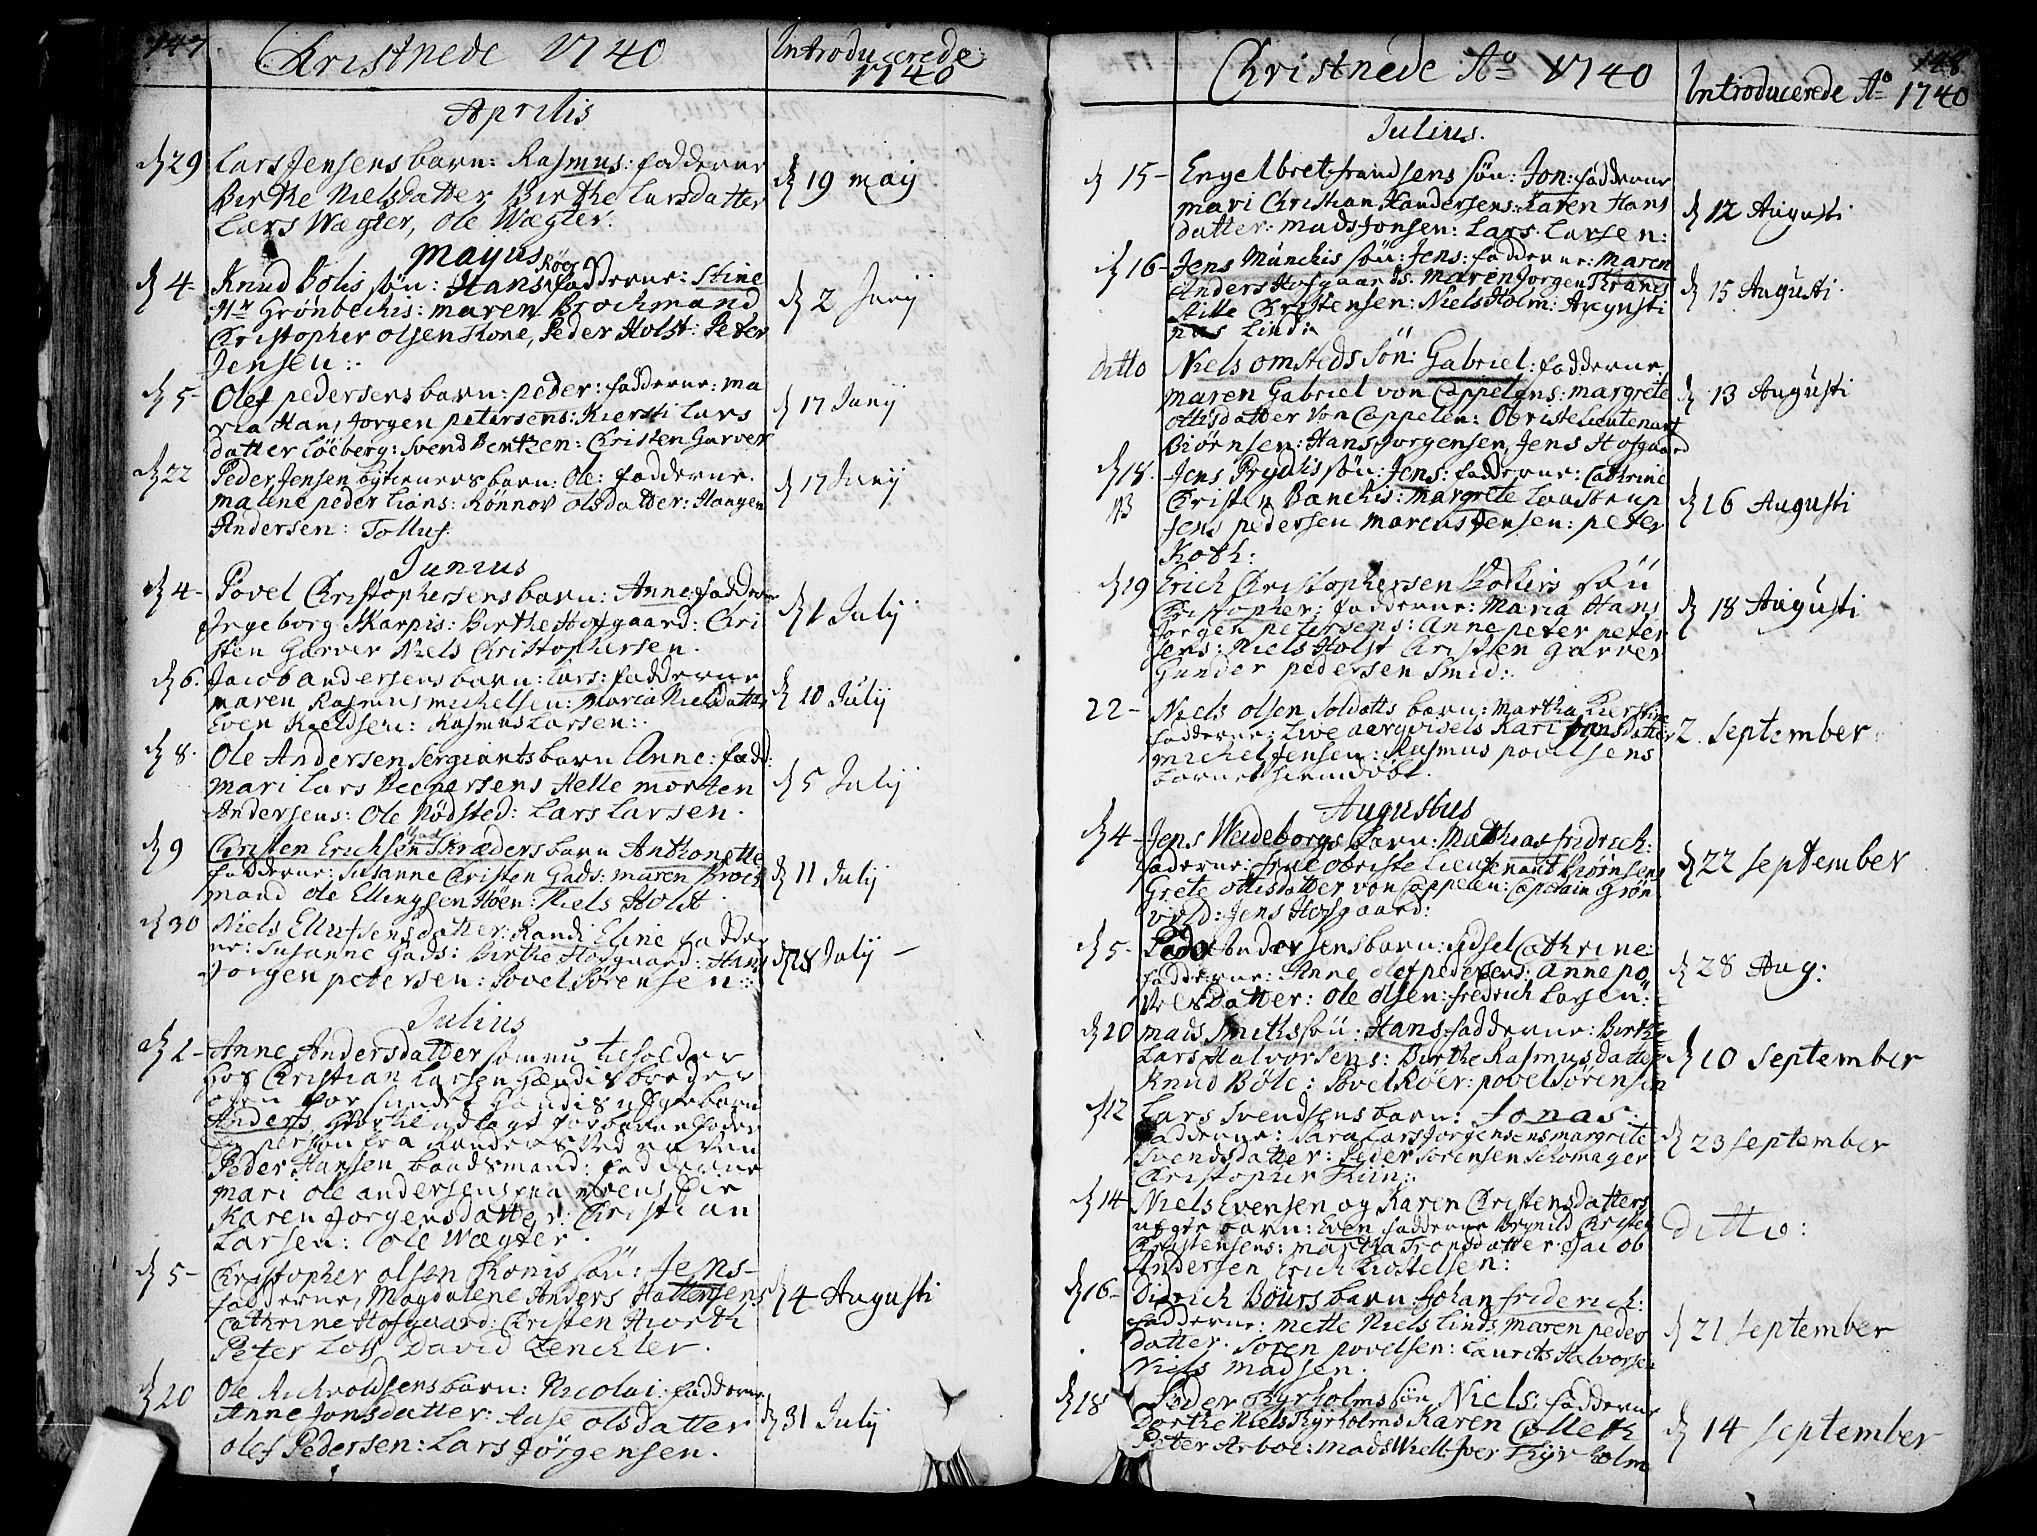 147
Christnede 1740
Introducerede
1740
Aprilis
d 29 Lars Jensens barn: Rasmus: fadderne
Birthe Nielsdatter Birthe Larsdatter
Lars Wægter, Ole Wægter.
d 19 maij
Mayus
d 4 Knud Bolis søn: Hans Röer fadderne: Stine
Hr Grönbechis: maren Brochmand
Christopher olsen Kone, Peder Holst: Peter
Jensen:
d 2 Junij
d 5 Olef pedersens barn: peder: fadderne: ma
ria Hans Jorgen petersens: Kiersti Lars
datter Löeberg: Svend Bentzen: Christen Garver
d 17 Junij
d 22 Peder Jensen bytieners barn: Ole: fadderne.
malene peder Lians: Rönnov olsdatter: Haagen
Andersen: Tollus.
d 17 Junij
Junius
d 4 Povel Christophersens barn: Anne: fadderne
Ingeborg Skarpis: Birthe Hofgaard: Chri
sten Garver Niels Christophersen.
d 1 Julij
d 6. Jacob andersens barn: Lars: fadderne
maren Rasmus michelsen: Maria Nielsdatter
Even Kieldsen: Rasmus Larsen:
d 10 Julij
d 8. Ole Andersen Sergiants barn Anne: fadd:
mari Lars Helle morten
Andersens: Ole Nödsted: Lars Larsen.
d 5 Julij
d 9 Christen Erichsen Gad Skræders barn Anthonette
fadderne: Susanne Christen Gads: maren Broch
mand ole Ellingsen Höen: Niels Holst.
d 11 Julij
d 30 Niels Ellefsens datter: Randi Eline fadder
ne: Susanne Gads: Birthe Hofgaard: Hans
Jorgen petersen: Povel Sörensen:
d 28 Julij
Julius
d 2 Anne Andersdatter som nu tilholder
hos Christian Larsen
Anders
Peder Hansen baadsmand: fadderne
mari ole andersens
Karen Jorgensdatter: Christian
Larsen: ole Wægter.
d 5 Christopher olsen Konis søn: Jens
fadderne, Magdalene Anders Hattersens
Cathrine Hofgaard: Christen Hiorth
Peter Lots David Zenchler.
d 4 Augusti
d 20 Ole Achvoldsens barn: Nicolai: fadderne
Anne Jonsdatter: Aase olsdatter
olef Pedersen: Lars Jörgensen.
d 31 Julij
148
Christnede Ao 1740
Introducerede Ao 1740
Julius.
d 15 Engelbret frandsens søn: Jon: fadderne
mari Christian Handersens: Karen Hans
datter: mads Jonsen: Lars Larsen:
d 12 Augusti
d 16 Jens Münchis søn: Jens: fadderne: maren
Anders Hofgaards. maren Jorgen
Christensen: Niels Holm: Augusti
nus Lind:
d 15 Augusti
ditto Niels omsteds søn: Gabriel: fadderne
maren Gabriel von Cappelens: margrete
ottisdatter Von Cappelen: Obriste Lieutenant
Biörnsen: Hans Jorgensen, Jens Hofgaard
d 13 Augusti
d 18. Jens Prydis søn: Jens: fadderne: Cathrine
NB Christen Banchis: margrete Laastrup
Jens pedersen marcus Jensen: peter
Koth:
d 16 Augusti
d 19 Erich Christophersen søn
Christopher: fadderne: Maria Hans
Jorgen petersens: Anne peter peter
sens: Niels Holst Christen garver
Gunder pedersen Smid:
d 18 Augusti
22 Niels olsen Soldats barn: Martha Kierstine
fadderne: Live Kari Hansdatter
michel Jensen: Rasmus povelsens
barnet hiemdöbt.
2 September
Augustus
d 4 Jens Weideborgs barn: Mathias fridrich:
fadderne: frue obriste Lieutenant Biörnsens
Grete ottisdatter von Cappelen: Captain Grön
vold: Jens Hofgaard:
d 22 September
d 5 Peder Andersens barn: ydsel Cathrine:
fadderne: Anne olef pedersens: anne po
velsdatter: ole olsen: fredrich Larsen:
d 28 Aug:
d 10 mads Smiths søn: Hans fadderne: Birthe
Lars Halvorsens: Birthe Rasmusdatter
Knud Böle: Povel Röer: povel Sörensen
d 10 September
d 12 Lars Svendsens barn: Jonas:
fadderne: Sara Lars Jorgensens margrete
Svendsdatter: Peder Sorensen Schomager
Christopher
d 23 September
d 14 Niels Evensen og Karen Christensdatters
uægte barn: Even fadderne Brynild Christen
Christensens: martha Tronsdatter: Jacob
Andersen Erich
Ditto:
d 16 Didrich Böürs barn: Johan friderich:
fadderne: mette Niels Linds maren peder
datter. Soren povelsen: Laurits Halvorsen
Niels madsen.
d 21 September
d 18 Peder Thyrholms søn Niels: fadderne
Dorthe Niels Thyrholms Karen Colleth
Peter Arboe: mads Wiell: Iver Thyrholm
d 14 September